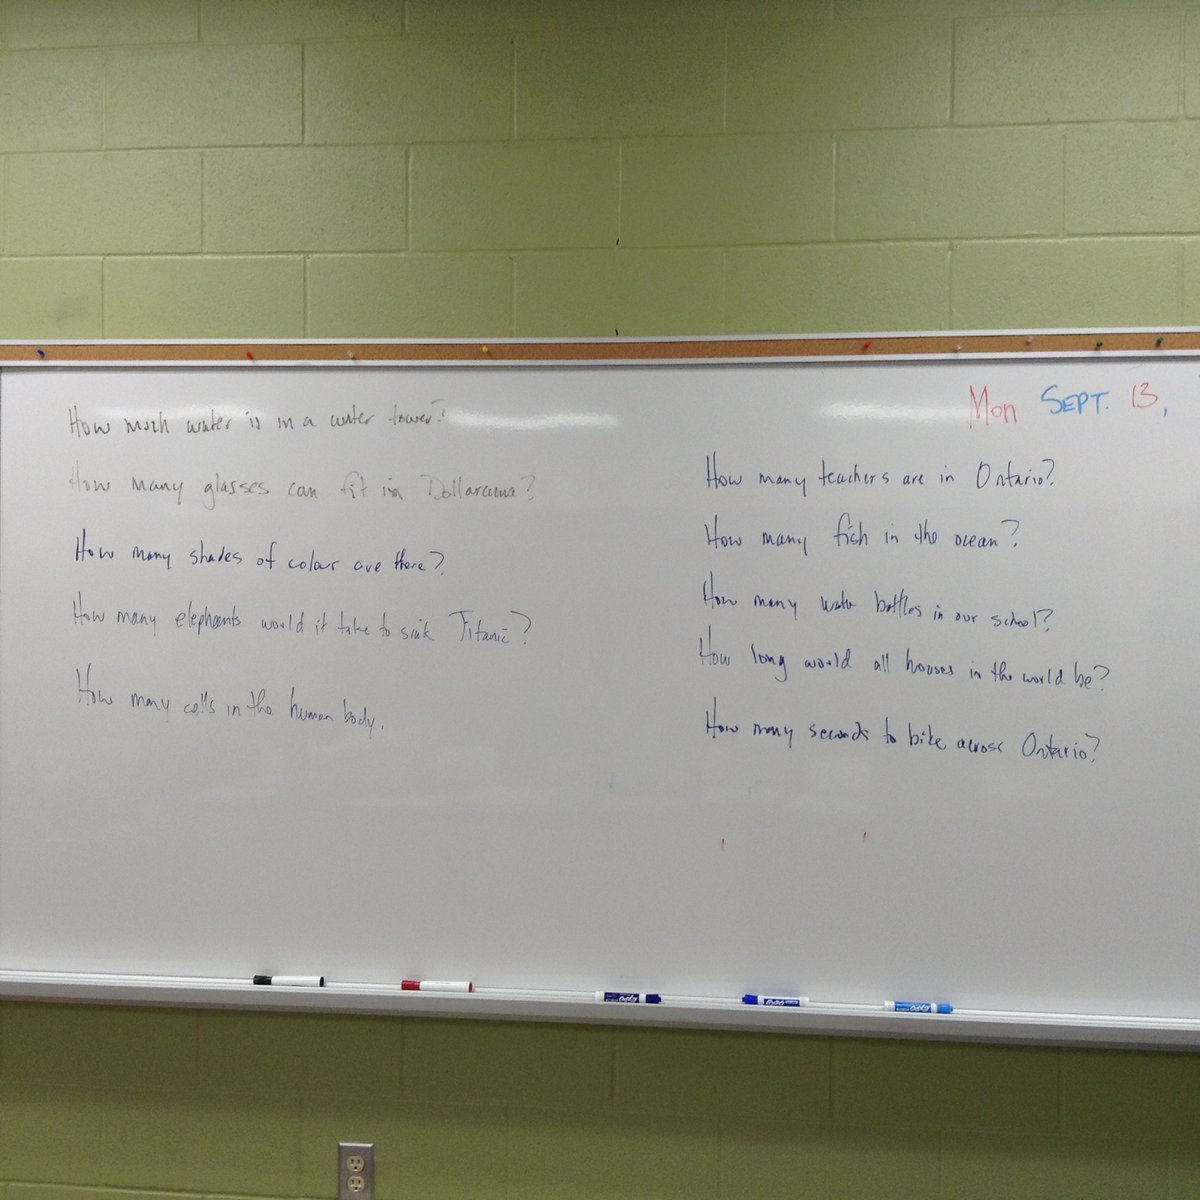 How much water is in a water tower?
How many glasses can fit in Dollarama?
How many shades of colour are there?
How many elephants would it take to sink Titanic?
How many cells in the human body.
Mon SEPT. 13,
How many teachers are in Ontario?
How many fish in the ocean?
How many water bottles in our school?
How long would all houses in the world be?
How many seconds to bike across Ontario?
EXPO
EXPO
EXPO